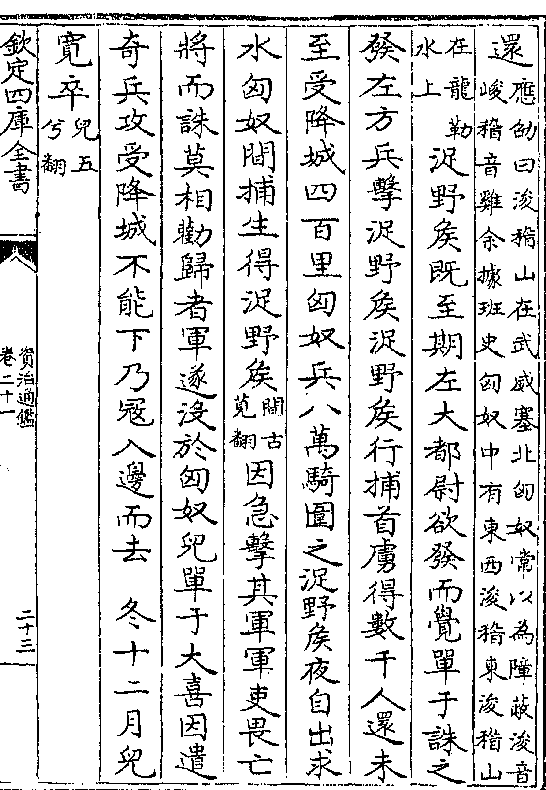 還應劭曰浚稽山在武威塞北匈奴常以為障蔽浚音
峻稽音雞余據班史匈奴中有東西浚稽東浚稽山
在龍勒
水上浞野侯既至期左大都尉欲發而覺單于誅之
發左方兵擊浞野侯浞野侯行捕首虜得數千人還未
至受降城四百里匈奴兵八萬騎圍之浞野侯夜自出求
水匈奴間捕生得浞野侯間古
莧翻因急擊其軍軍吏畏亡
將而誅莫相勸歸者軍遂沒於匈奴兒單于大喜因遣
奇兵攻受降城不能下乃寇入邊而去 冬十二月兒
寬卒兒五
兮翻
欽定四庫全書
資治通鑑
卷二十一
二十三